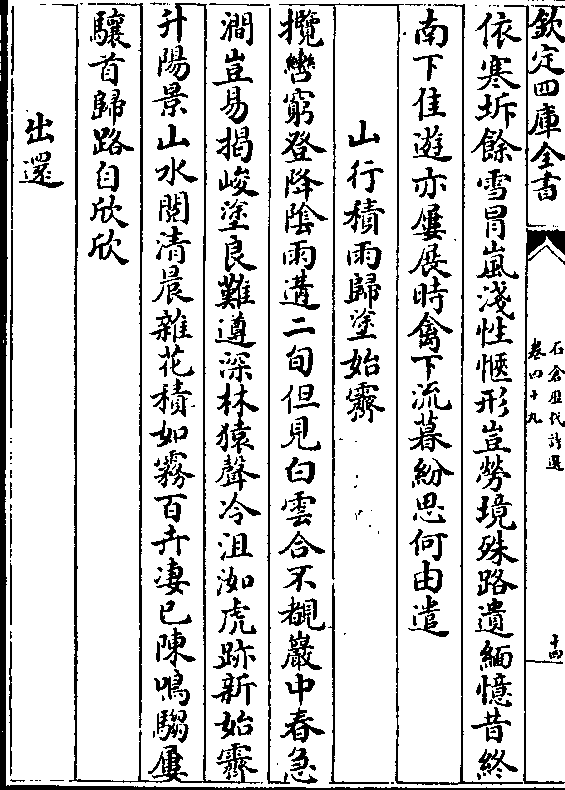 欽定四庫全書
石倉歷代詩選
卷四十九
十四
依寒坼餘雪冒嵐淺性愜形豈勞境殊路遺緬憶昔終
南下佳遊亦屢展時禽下流暮紛思何由遣
山行積雨歸塗始霽
攬轡窮登降陰雨遘二旬但見白雲合不覩巖中春急
澗豈易揭峻塗良難遵深林猿聲冷沮洳虎跡新始霽
升陽景山水閱清晨雜花積如霧百卉凄已陳鳴騶屢
驤首歸路自欣欣
出還